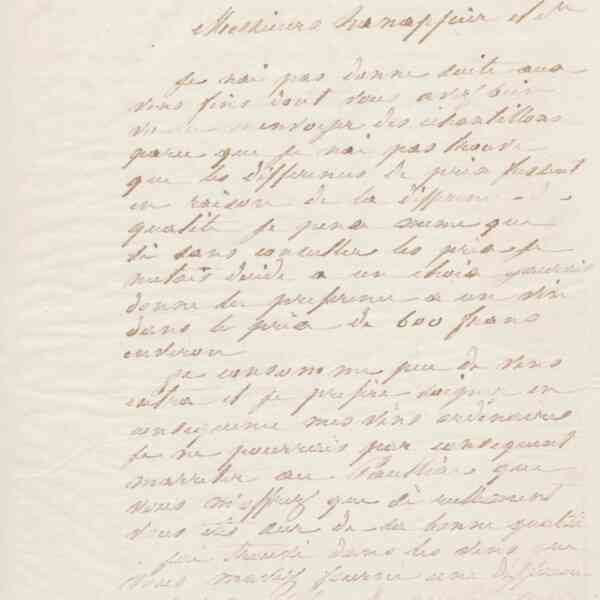 Messieurs hanappier et Cie
Je nai pas donne suite aux
vins fins dont vous avez bien
voulu menvoyer des echantillons
parce que je nai pas trouve
que les differences de prix fussent
en raison de la difference de
qualite je pense meme que
si sans consulter les prix je
metais decide a un choix jaurais
donne la preference a un vin
dans le prix de 600 frans
environ
Je consomme peu de vins
extra et je prefere soigner en
consequence mes vins ordinaires
Je ne pourrais par consequent
marreter au Pauillac que
vous moffrez que si reellement
vous etes sur de sa bonne qualité
jai trouvé dans les vins que
vous maviez fourni une